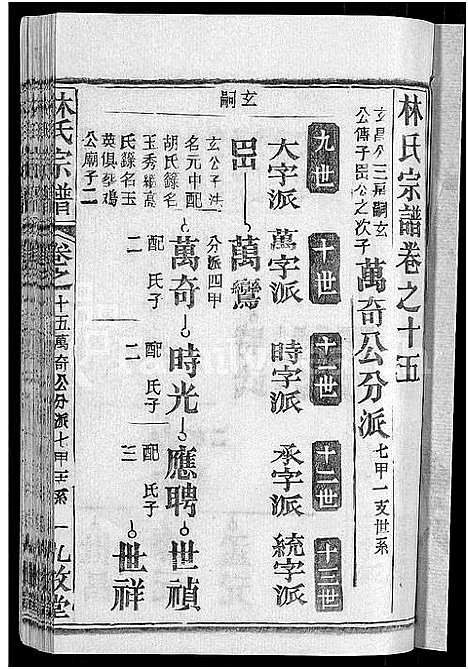 林氏宗譜卷之十五
玄昌公三房嗣玄
公傳子㽞公之次子
萬奇公分派
七甲一支世系
九世
十世
十一世
十二世
十三世
大字派
萬字派
時字派
承字派
統字派
玄嗣
萬鸞
玄公子
名元中配
胡氏籙名
玉秀繼萬
氏籙名玉
英俱葬鴉
公廟子二
分派四甲
萬奇
配
氏子
二
時光
配
氏子
二
應聘
配
氏子
三
世禎
世祥
林氏宗譜
卷之
十五萬奇公分派七甲世系
一
九牧堂